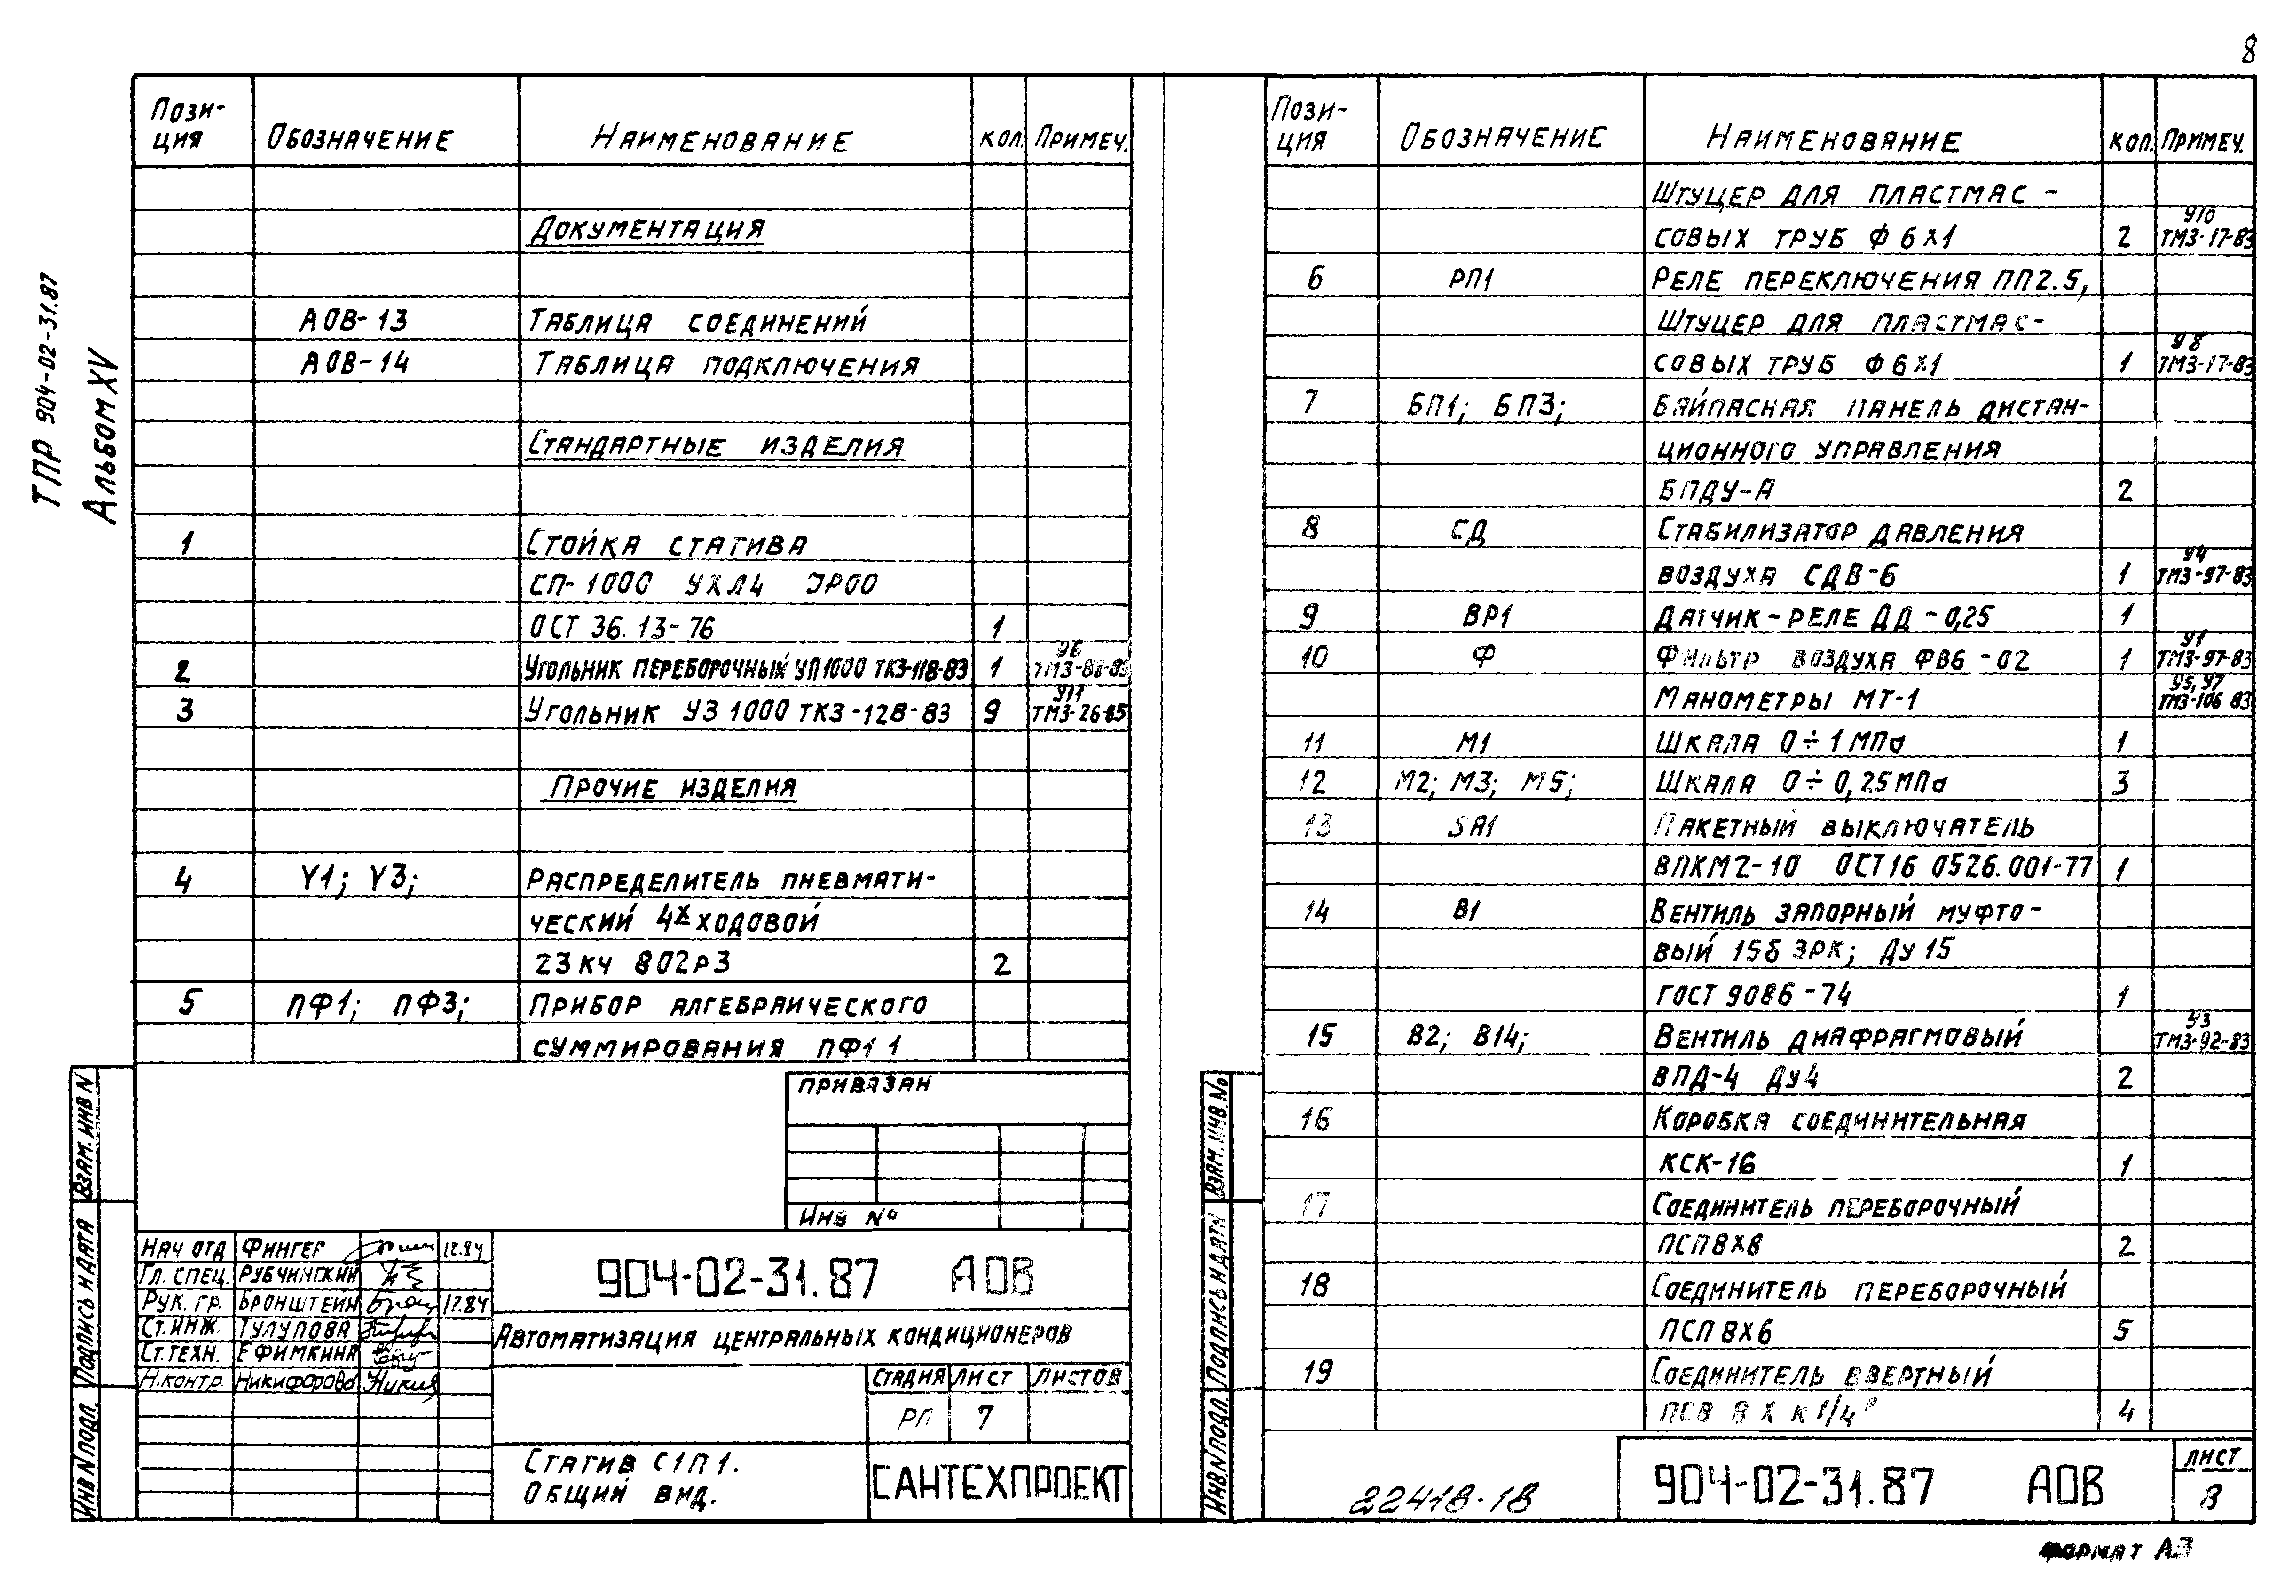 8
ТПР 904-02-31.87
Альбом XV
Пози-
ция Обозначение Наименование кол. Примеч.
Документация
АОВ-13 Таблица соединений
АОВ-14 Таблица подключения
Стандартные изделия
1 Стойка статива
СП-1000 УХЛ4 IP00
ОСТ 36.13-76 1
У6
2 Угольник переборочный УП1000 ТК3-118-83 1 ТМ3-88-83
3 Угольник УЗ 1000 ТК3-128-83 9 ТМ3-26-85
Прочие изделия
4 Y1; Y3; Распределитель пневмати-
ческий 4х ходовой
23кч 802р3 2
5 ПФ1; ПФ3; Прибор алгебраического
суммирования ПФ1 1
Привязан
Инв №
Взам. инв N
Подпись и дата
Инв N подл.
Нач отд Фингер 12.84
Гл. спец. Рубчинский
Рук. гр. Бронштейн 12.84
Ст. инж. Тулупова
Ст. техн. Ефимкина
Н. контр. Никифорова
904-02-31.87 АОВ
Автоматизация центральных кондиционеров
Стадия Лист Листов
РП 7
Статив С1П1.
Общий вид.
САНТЕХПРОЕКТ
Пози-
ция Обозначение Наименование кол. Примеч.
Штуцер для пластмас-
У10
совых труб Ф 6х1 2 ТМ3-17-83
6 РП1 Реле переключения ПП2.5,
Штуцер для пластмас-
У8
совых труб Ф 6х1 1 ТМ3-17-83
7 БП1; БП3; Байпасная панель дистан-
ционного управления
БПДУ-А 2
8 СД Стабилизатор давления
У4
воздуха СДВ-6 1 ТМ3-97-83
9 ВР1 Датчик-реле ДД-0,25 1
У1
10 Ф Фильтр воздуха ФВ6-02 1 ТМ3-97-83
У5, У7
Манометры МТ-1 ТМ3-106 83
11 М1 Шкала 0÷1МПа 1
12 М2; М3; М5; Шкала 0÷0,25МПа 3
13 SA1 Пакетный выключатель
ВПКМ2-10 ОСТ16 0526.001-77 1
14 В1 Вентиль запорный муфто-
вый 15б 3рк; Ду 15
ГОСТ 9086-74 1
У3
15 В2; В14; Вентиль диафрагмовый ТМ3-92-83
ВПД-4 Ду4 2
16 Коробка соединительная
КСК-16 1
17 Соединитель переборочный
ПСП8х8 2
18 Соединитель переборочный
ПСП 8х6 5
19 Соединитель ввертный
ПСВ 8 х К 1/4" 4
Взам. инв. №
Подпись и дата
Инв N подл.
22418-18
904-02-31.87 АОВ
Лист
8
Формат А3